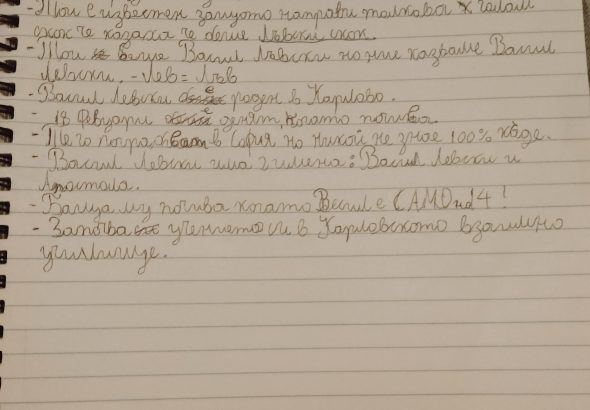 - Той е известен защото направи толкова голям
скок че казаха че беше Лъвски скок.
- Той беше Васил Лъвски но ние казваме Васил
Левски. - Лев = Лъв
- Васил Левски е роден в Карлово.
- 18 Февуари е денят, когато почива.
- Него погр в София но никой не знае 100% къде.
- Васил Левски има 2 имена: Васил Левски и
Апостола.
- Баща му почива когато Васил е САМО на 14!
- Започва учението си в Карловското взаимно
училище.